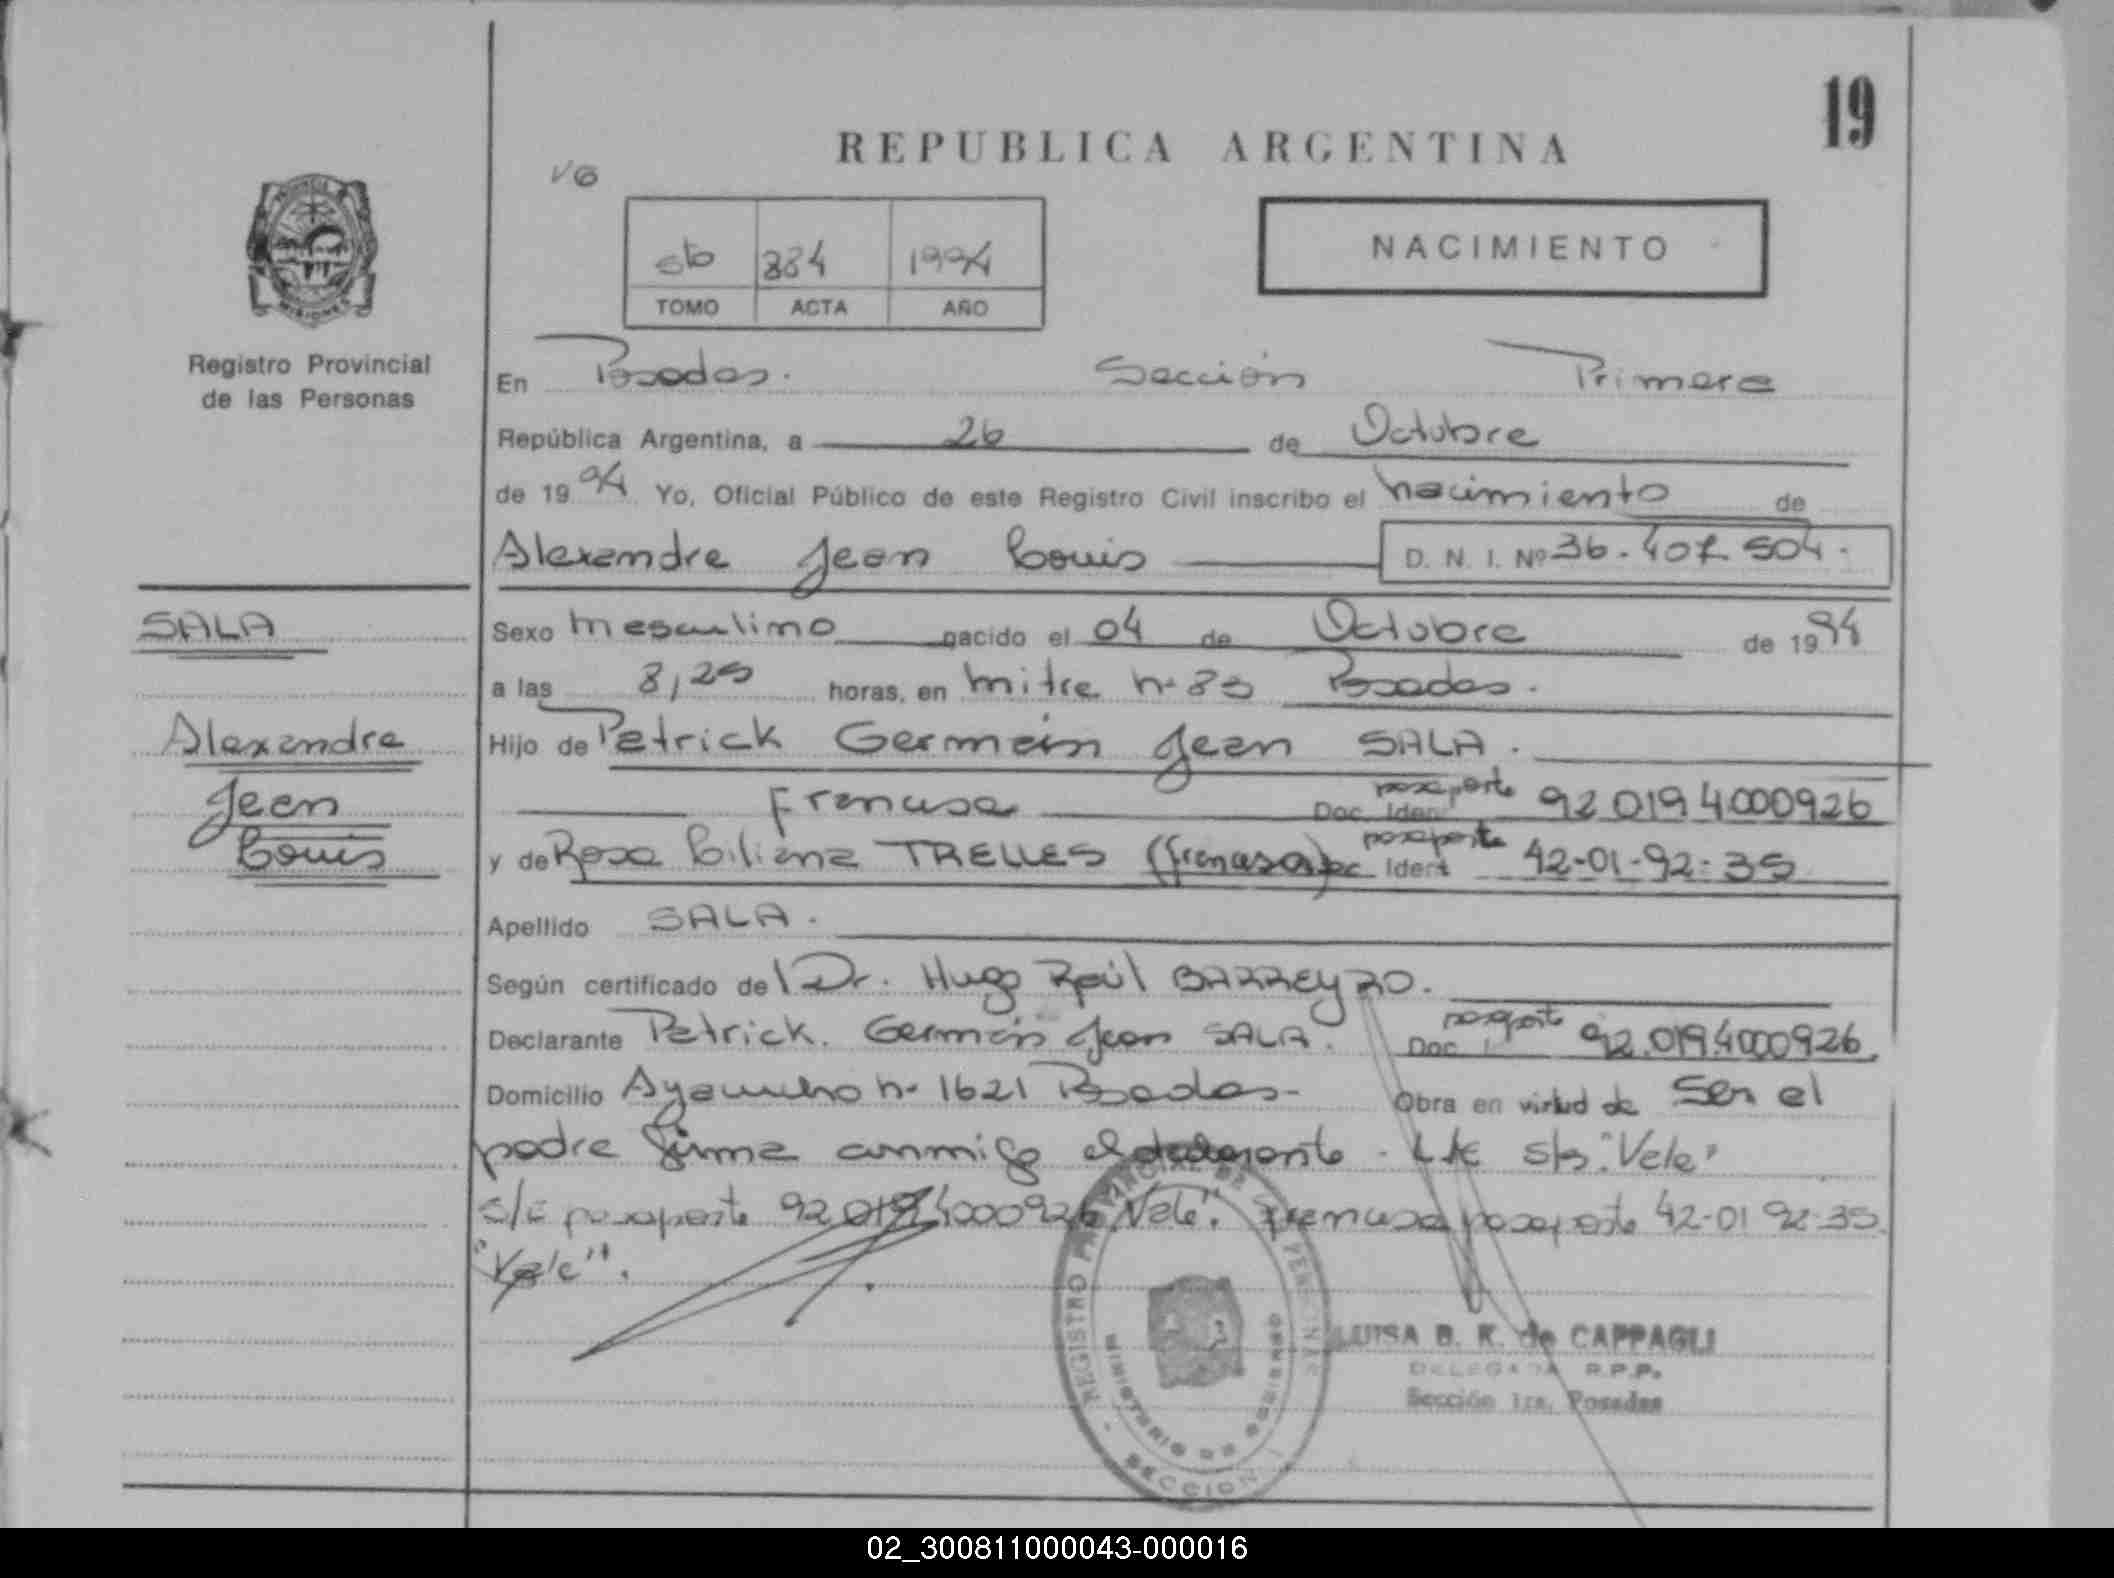 19
REPUBLICA ARGENTINA
NACIMIENTO
6to 884 1994
TOMO ACTA AÑO
PROVINCIA
MISIONES
Registro Provincial
de las Personas
En Posadas. Sección Primera
República Argentina, a 26 de Octubre
de 1994 Yo, Oficial Público de este Registro Civil inscribo el nacimiento de
Alexandre Jean Louis D. N. I. Nº 36.407.504.
SALA
Sexo masculino nacido el 04 de Octubre de 1994
a las 8,25 horas, en mitre nº 83 Posadas.
Alexandre
Jean
Louis
Hijo de Patrick Germain Jean SALA.
Francesa pasaporte Doc. Iden 92 0194000926
y de Rosa Liliana TRELLES (francesa) pasaporte Doc. Ident 42-01-92-35
Apellido SALA.
Según certificado del Dr. Hugo Raúl BARREYRO.
Declarante Patrick. Germain Jean SALA. pasaporte Doc. I 92.0194000926.
Domicilio Ayacucho nº 1621 Posadas- Obra en virtud de Ser el
padre firma conmigo el declarante. s/b. "Vale"
s/l pasaporte 92 0194000926 "Vale". francesa pasaporte 42-01 92-35.
"Vale".
REGISTRO PROVINCIAL DE LAS PERSONAS
MINISTERIO DE GOBIERNO
SECCION 1
LUISA B. K. de CAPPAGLI
DELEGADA R.P.P.
Sección 1ra. Posadas
02_300811000043-000016